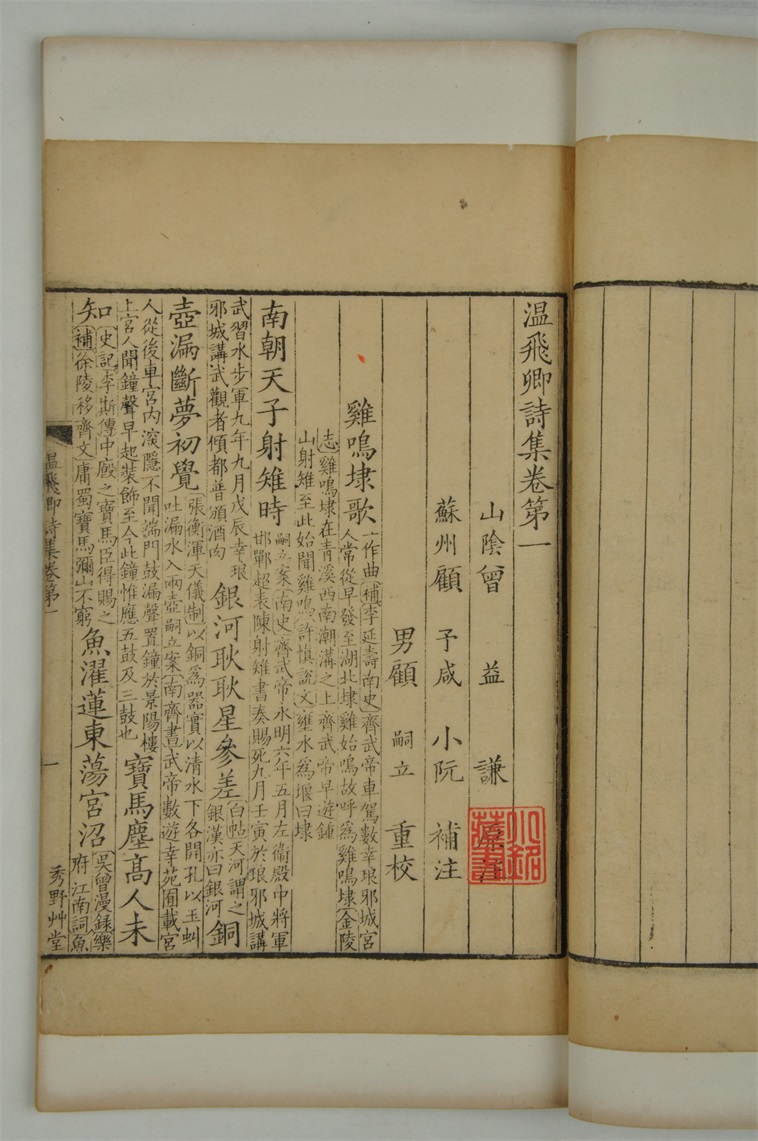 温飛卿詩集卷第一
山陰曾 益 謙
蘇州顧 予咸 小阮 補注
男顧 嗣立 重校
雞鳴埭歌一作曲補李延壽南史齊武帝車駕數幸琅邪城宮
人常從早發至湖北埭雞始鳴故呼為雞鳴埭金陵
志雞鳴埭在青溪西南潮溝之上齊武帝早遊鍾
山射雉至此始聞雞鳴許慎說文壅水為堰曰埭
南朝天子射雉時嗣立案南史齊武帝永明六年五月左衞殿中將軍
邯鄲超表陳射雉書奏賜死九月壬寅於琅邪城講
武習水步軍九年九月戊辰幸琅
邪城講武觀者傾都普頒酒肉銀河耿耿星參差白帖天河謂之
銀漢亦曰銀河銅
壺漏斷夢初覺張衡渾天儀制以銅為器實以清水下各開孔以玉虬
吐漏水入兩壺嗣立案南齊書武帝數遊幸苑囿載宮
人從後車宮內深隱不聞端門鼓漏聲置鐘於景陽樓
上宮人聞鐘聲早起裝飾至今此鐘惟應五鼓及三鼓也寶馬塵高人未
知史記李斯傳中廄之寶馬臣得賜之
補徐陵移齊文庸蜀寶馬彌山不窮魚濯蓮東蕩宮沼吳曾漫錄樂
府江南詞魚
温飛卿詩集卷第一
一
秀野艸堂